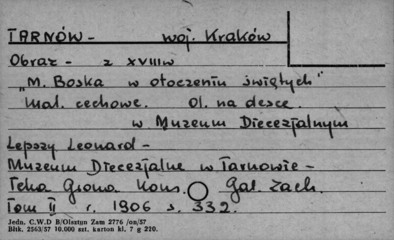 TARNÓW - woj. Kraków
Obraz - z XVIII w
"M. Boska w otoczeniu świętych"
mal. cechowe. Ol. na desce.
w Muzeum Diecezjalnym
Lepszy Leonard -
Muzeum Diecezjalne w Tarnowie -
Teka Grona Kons. Gal. Zach.
Tom II r. 1906 s. 332.
Jedn. C.W.D B/Olsztyn Zam 2776 /on/57
Blikt. 2563/57 10.000 szt. karton kl. 7 g 220.